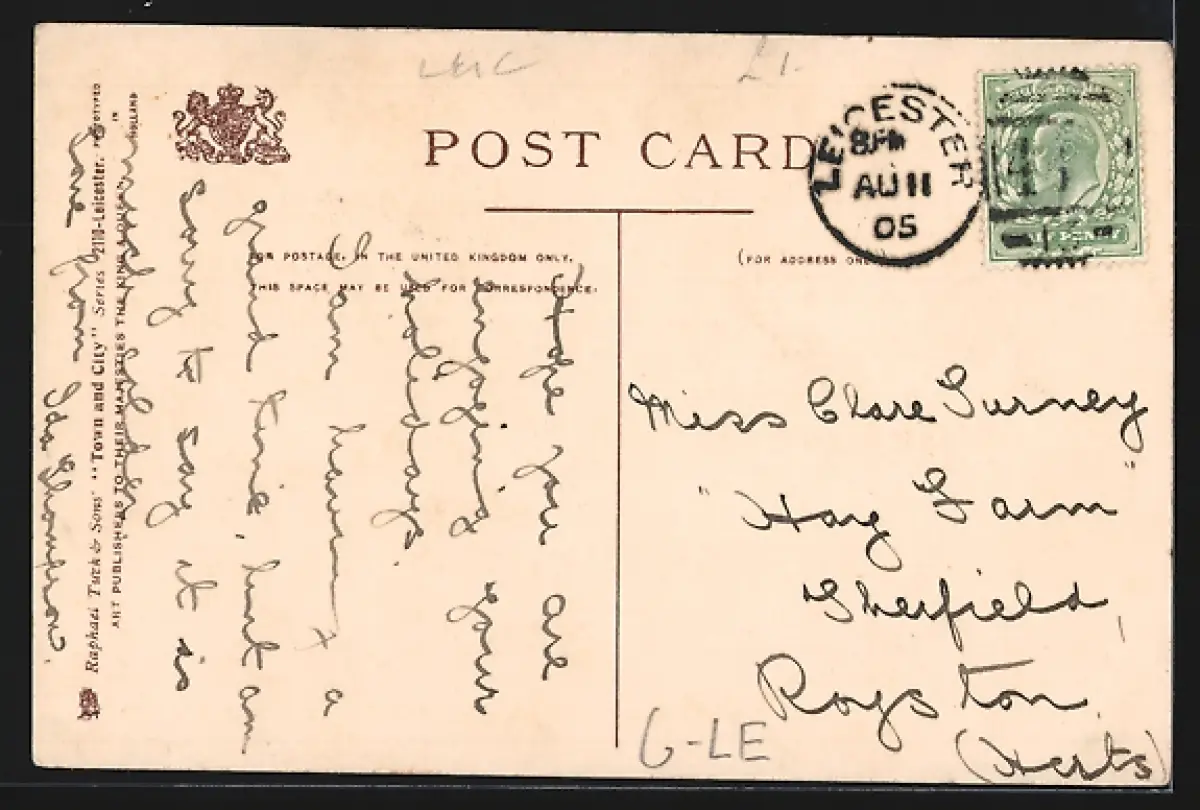 LEIC
£1.
POST CARD
FOR POSTAGE IN THE UNITED KINGDOM ONLY.
THIS SPACE MAY BE USED FOR CORRESPONDENCE.
(FOR ADDRESS ONLY)
LEICESTER
8 PM
AU 11
05
HALFPENNY
Hope you are
enjoying your
holidays.
I am having a
grand time, but am
sorry to say it is
much colder.
Love from Ida Thompson.
Miss Clare Gurney
"Hay Farm"
Therfield,
Royston
(Herts)
G-LE
Raphael Tuck & Sons' "Town and City" Series 2110-Leicester.
ART PUBLISHERS TO THEIR MAJESTIES THE KING & QUEEN
IN HOLLAND